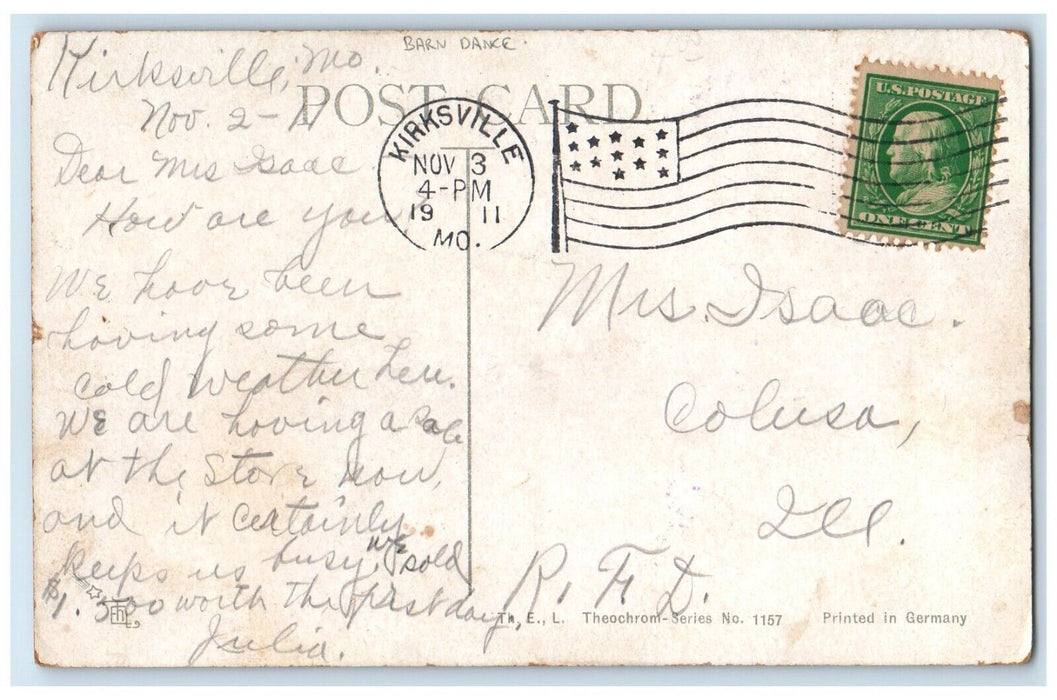 BARN DANCE.
POST CARD
Kirksville, Mo.
Nov. 2-11
Dear Mrs Isaac
How are you?
We have been
having some
cold weather here.
We are having a sale
at the store now,
and it certainly
keeps us busy. We sold
worth the first day,
Julia.
KIRKSVILLE
NOV 3
4-PM
19 11
MO.
U.S. POSTAGE
ONE CENT
Mrs. Isaac.
Colusa,
Ill.
R. F. D.
Th. E., L. Theochrom-Series No. 1157 Printed in Germany